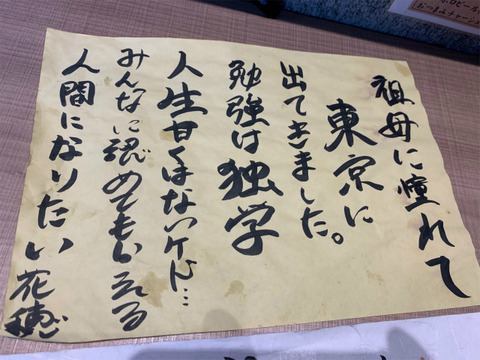 祖母に憧れて
東京に
出てきました。
勉強は独学
人生甘くはないけど…
みんなに認めてもらえる
人間になりたい 花穂